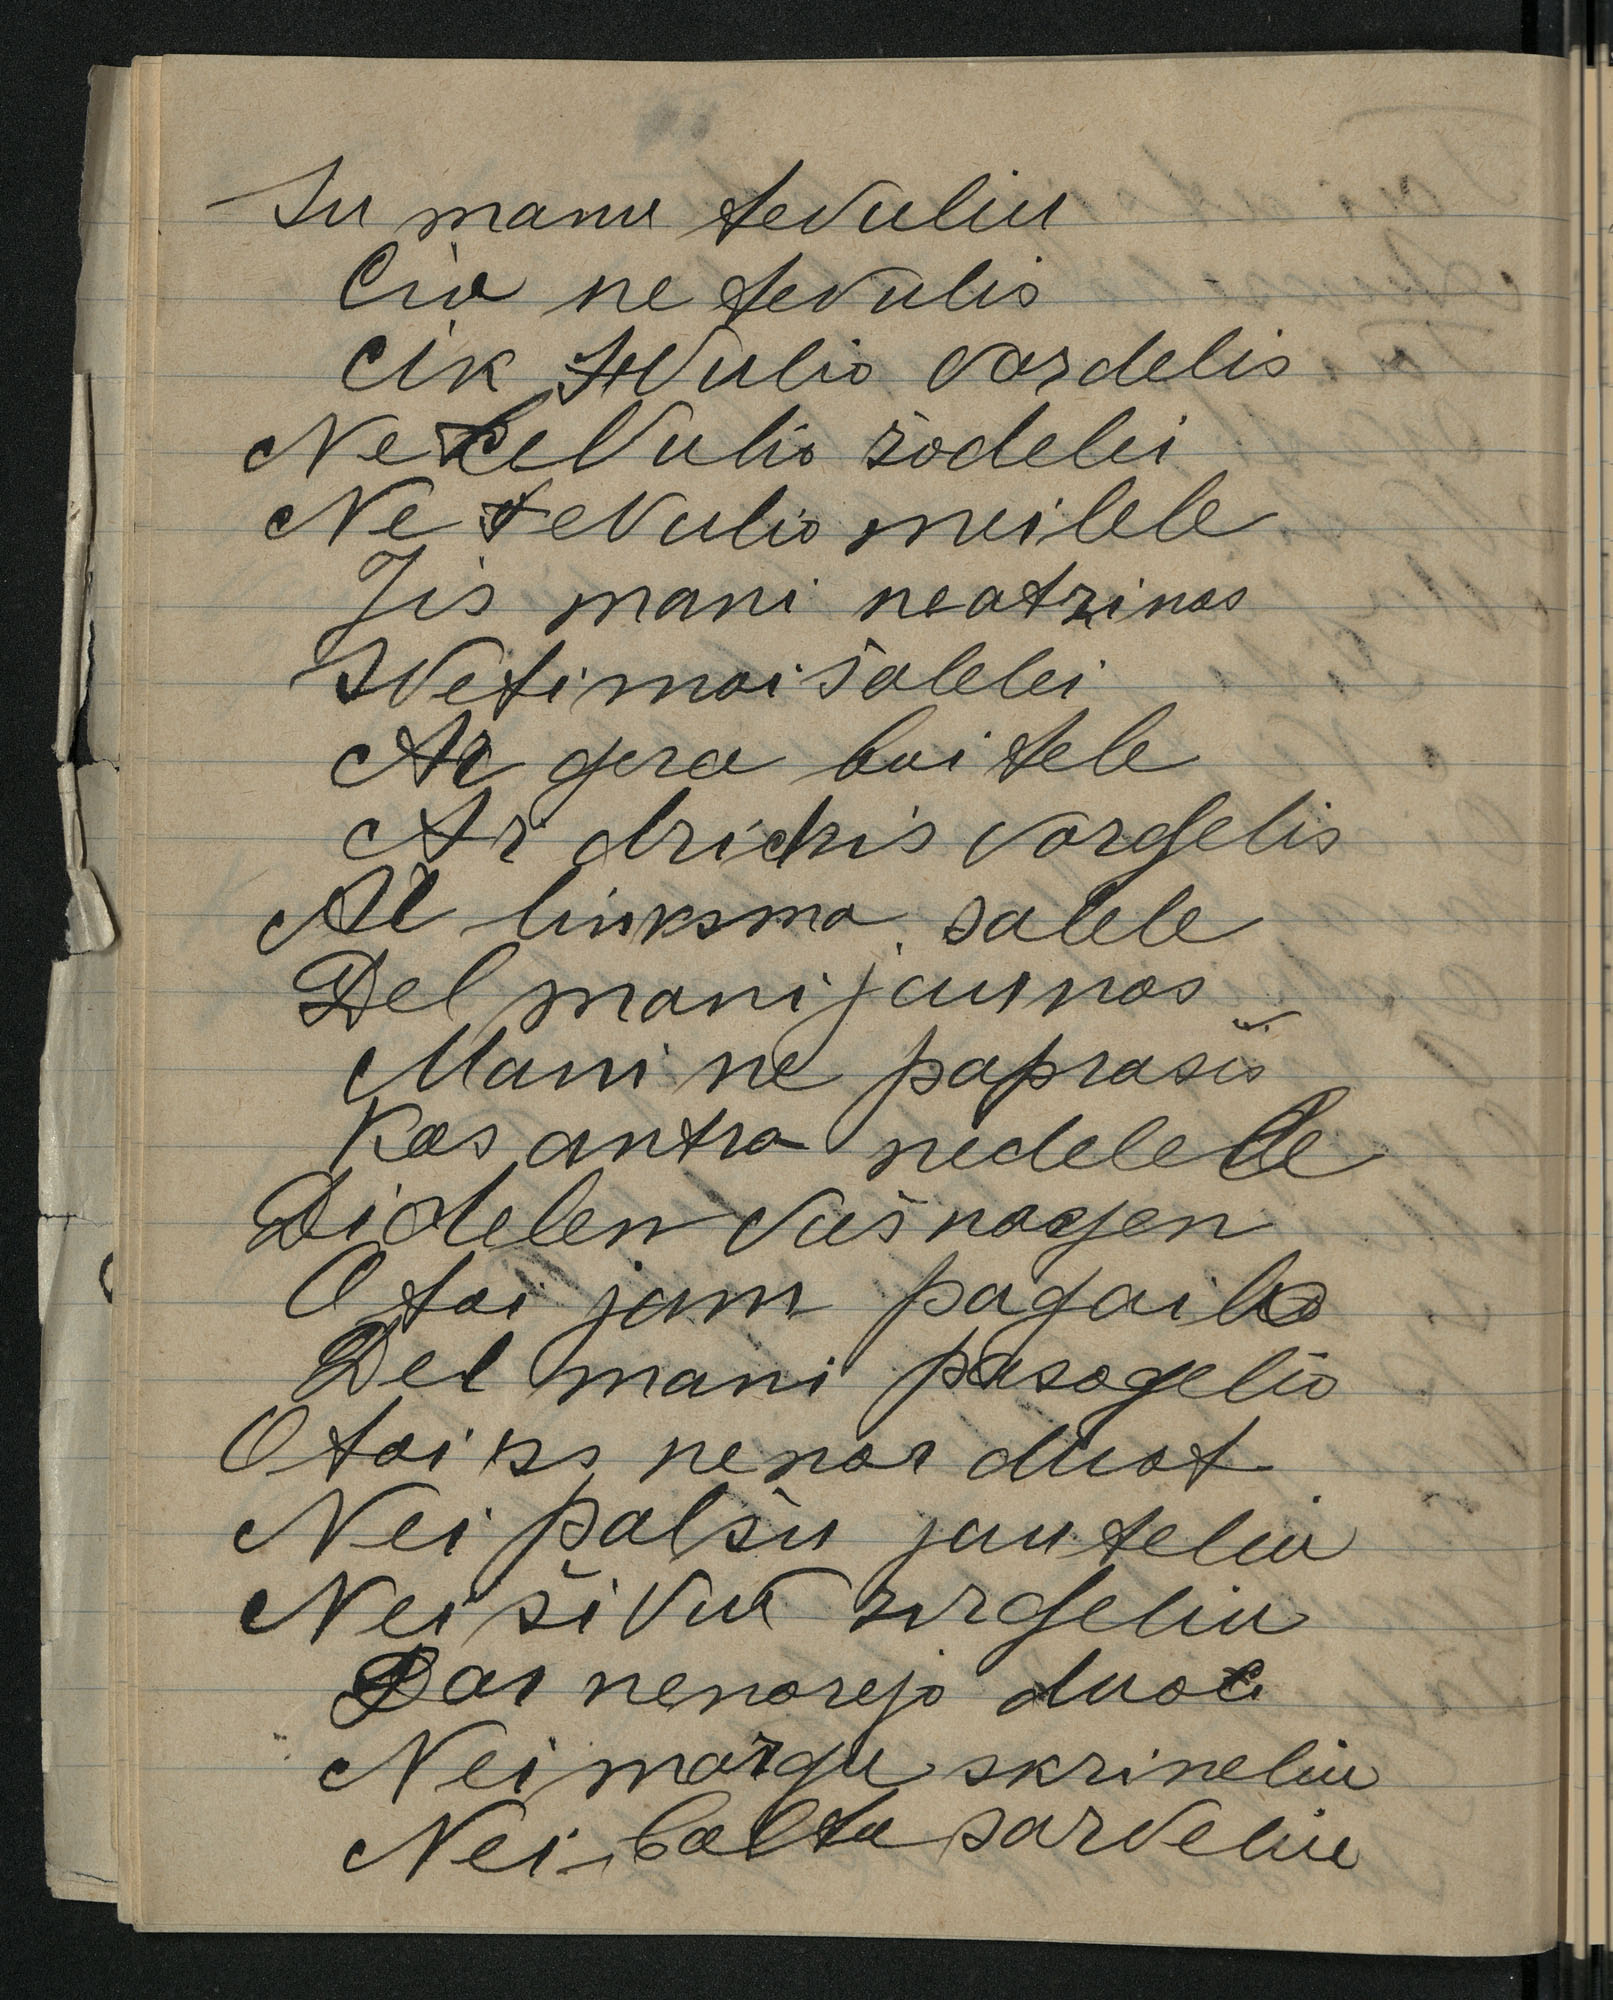 Su manu tevuliu
Čia ne tevulis
Cik tevulio vardelis
Ne tevulio žodelei
Ne tevulio meilele
Jis mani neatzinas
Svetimai šalelei
Ar gera buitele
Ar dzickis vargelis
Ar linksma salele
Del mani jaunas
Mani ne paprašis
Kas antra nedelele
Didelen vušnagen
O tai jam pagailo
Del mani pasogelio
O tai ks nenor duot
Nei palšu jauteliu
Nei širvu žirgeliu
Dar nenorejo duoc
Nei margu skrineliu
Nei baltu sarveliu